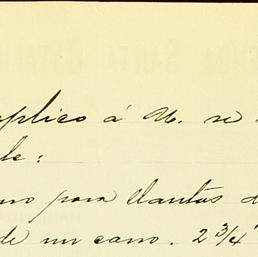 uplico á U. se
le:
no para llantas d
de un carro. 2 3/4"